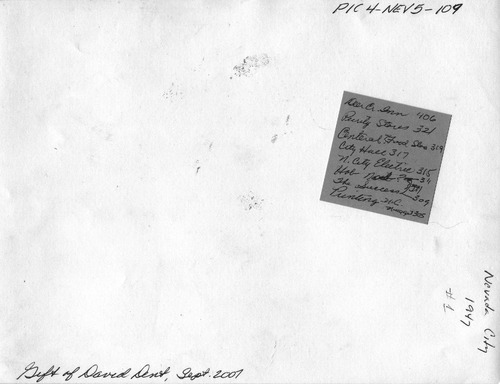 PIC 4-NEV5-109
Deer Cr. Inn 406
Purity Stores 321
Central Food Store 319
City Hall 317
N. City Electric 315
Hob
The Success 309
Printing N.C.
Nevada City
1947
Gift of David Dent, Sept. 2007